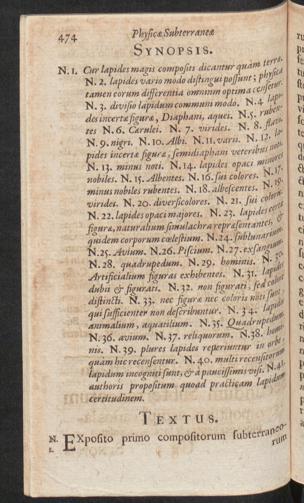 474 Physicæ Subterraneæ
SYNOPSIS.
N. 1. Cur lapides magis compositi dicantur quam terræ.
N. 2. lapides vario modo distingui possunt; physica
tamen eorum differentia omnium optima censetur.
N. 3. divisio lapidum communi modo. N. 4 lapi-
des incertæ figuræ, Diaphani, aquei. N. 5. ruben-
tes N. 6. Cærulei. N. 7. virides. N. 8. flavi.
N. 9. nigri. N. 10. Albi. N. 11. varii. N. 12. la-
pides incertæ figuræ, semidiaphani veteribus noti.
N. 13. minus noti. N. 14. lapides opaci minores
nobiles. N. 15. Albentes. N. 16. sui coloris. N. 17.
minus nobiles rubentes. N. 18. albescentes. N. 19.
virides. N. 20. diversicolores. N. 21. sui coloris
N. 22. lapides opaci majores. N. 23. lapides certæ
figuræ, naturalium simulachra repræsentantes, &
quidem corporum cœlestium. N. 24. sublunarium
N. 25. Avium. N. 26. Piscium. N. 27. exsanguium
N. 28. quadrupedum. N. 29. hominis. N. 30.
Artificialium figuras exhibentes. N. 31. lapides
dubii & figurati. N. 32. non figurati, sed colore
distincti. N. 33. nec figuræ nec coloris noti sunt,
qui sufficienter non describuntur. N. 34. lapides
animalium, aquatilium. N. 35. Quadrupedum
N. 36. avium. N. 37. reliquorum. N. 38. homi-
nis. N. 39. plures lapides reperiuntur in orbe,
quàm hic recensentur. N. 40. multi recensitorum
lapidum incogniti sunt, & à paucissimis visi. N. 41.
authoris propositum quoad practicam lapidum
certitudinem.
TEXTUS.
N. 1. EXposito primo compositorum subterraneo-
rum